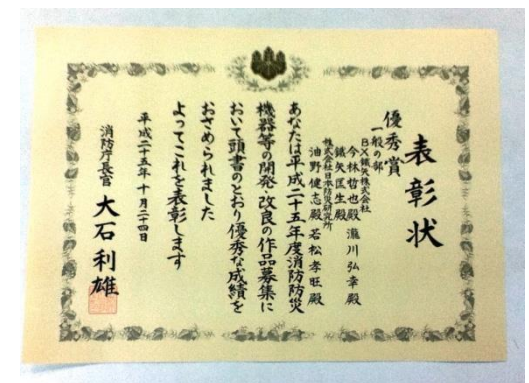 表彰状
優秀賞
一般の部
BX鐵矢株式会社
今林哲也殿 瀧川弘幸殿
鐵矢匡生殿
株式会社日本防災研究所
油野健志殿 若松孝旺殿
あなたは平成二十五年度消防防災
機器等の開発・改良の作品募集に
おいて頭書のとおり優秀な成績を
おさめられました
よってこれを表彰します
平成二十五年十月二十四日
消防庁長官 大石利雄